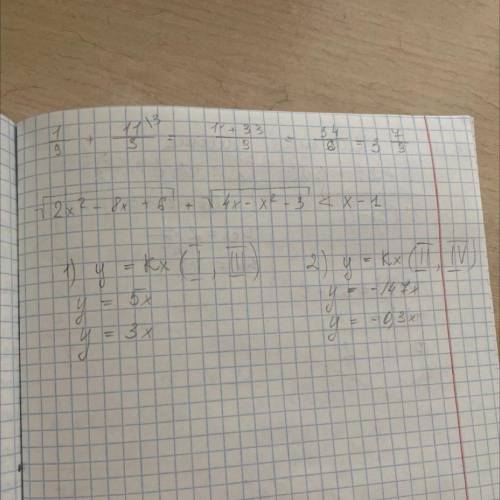 1/9 + 11\3/3 = 1+33/9 = 34/9 = 3 7/9
√2x² - 8x + 6 + √4x - x² - 3 < x - 1
1) y = Kx (I, III) 2) y = Kx (II, IV)
y = 5x y = -147x
y = 3x y = -0,3x